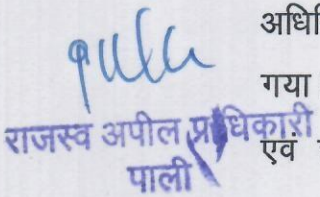 अधि
गया
राजस्व अपील प्राधिकारी
एवं
पाली